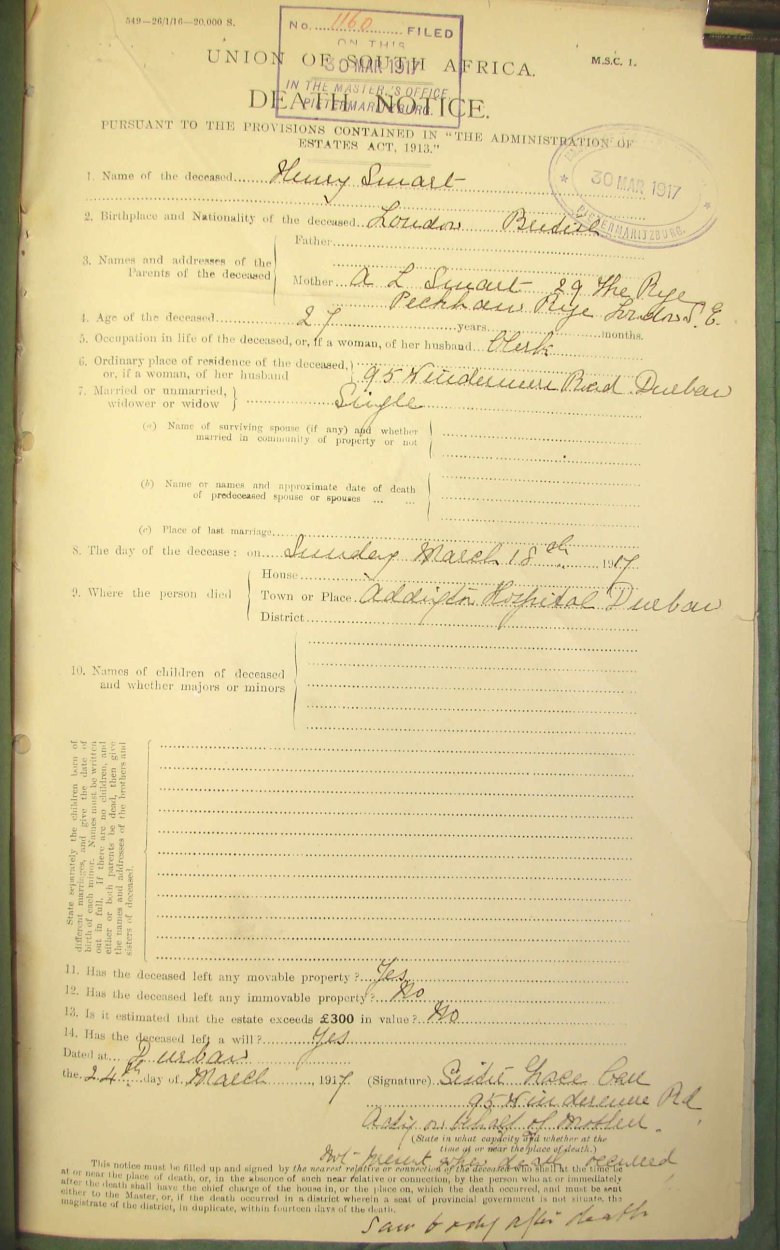 549—26/1/16—20,000 S.
No. 1160 FILED
ON THIS
30 MAR 1917
IN THE MASTER'S OFFICE
PIETERMARITZBURG.
UNION OF SOUTH AFRICA.
M.S.C. 1.
DEATH NOTICE.
PURSUANT TO THE PROVISIONS CONTAINED IN "THE ADMINISTRATION OF
ESTATES ACT, 1913."
30 MAR 1917
PIETERMARITZBURG.
1. Name of the deceased Henry Smart
2. Birthplace and Nationality of the deceased London British
3. Names and addresses of the Parents of the deceased
Father
Mother A L Smart 29 The Rye
Peckham Rye London S.E.
4. Age of the deceased 27 years months.
5. Occupation in life of the deceased, or, if a woman, of her husband Clerk
6. Ordinary place of residence of the deceased,
or, if a woman, of her husband 95 Windermere Road Durban
7. Married or unmarried,
widower or widow Single
(a) Name of surviving spouse (if any) and whether
married in community of property or not
(b) Name or names and approximate date of death
of predeceased spouse or spouses ... ...
(c) Place of last marriage
8. The day of the decease: on Sunday March 18th 1917
9. Where the person died
House
Town or Place Addington Hospital Durban
District
10. Names of children of deceased
and whether majors or minors
State separately the children born of
different marriages, and give the date of
birth of each minor. Names must be written
out in full. If there are no children, and
either or both parents be dead, then give
the names and addresses of the brothers and
sisters of deceased.
11. Has the deceased left any movable property? Yes
12. Has the deceased left any immovable property? No
13. Is it estimated that the estate exceeds £300 in value? No
14. Has the deceased left a will? Yes
Dated at Durban
the 24th day of March, 1917
(Signature) Grace
95 Windermere Rd
Actg on behalf of Mother.
(State in what capacity and whether at the
time at or near the place of death.)
Not present when death occurred
This notice must be filled up and signed by the nearest relative or connection of the deceased who shall at the time be
at or near the place of death, or, in the absence of such near relative or connection, by the person who at or immediately
after the death shall have the chief charge of the house in, or the place on, which the death occurred, and must be sent
either to the Master, or, if the death occurred in a district wherein a seat of provincial government is not situate, the
magistrate of the district, in duplicate, within fourteen days of the death.
Saw body after death